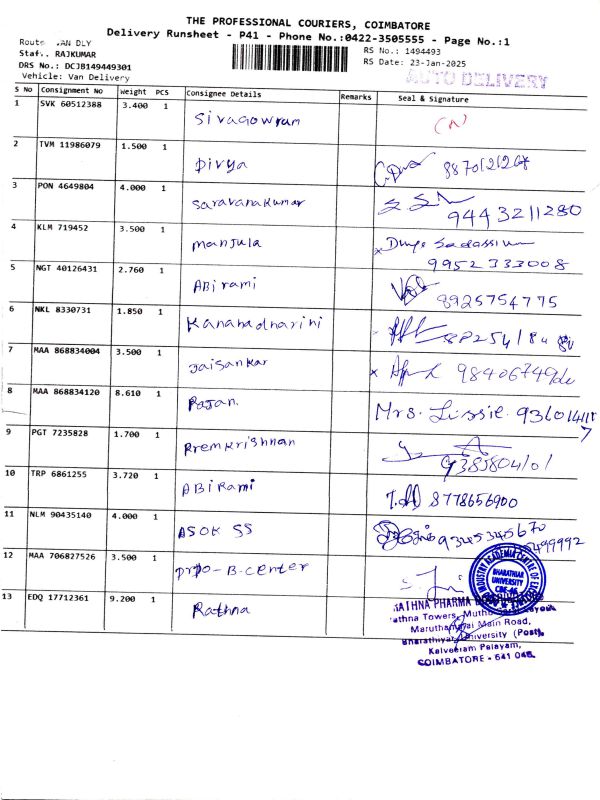 THE PROFESSIONAL COURIERS, COIMBATORE
Delivery Runsheet - P41 - Phone No.:0422-3505555 - Page No.:1
Route: VAN DLY
RS No.: 1494493
Staf.. RAJKUMAR
RS Date: 23-Jan-2025
DRS No.: DCJB149449301
Vehicle: Van Delivery
AUTO DELIVERY
S No Consignment No Weight PCS Consignee Details Remarks Seal & Signature
1 SVK 60512388 3.400 1 Sivagowram (N)
2 TVM 11986079 1.500 1 Divya
3 PON 4649804 4.000 1 Saravanakumar 9443211280
4 KLM 719452 3.500 1 Manjula 9952333008
5 NGT 40126431 2.760 1 ABirami 8925754775
6 NKL 8330731 1.850 1
7 MAA 868834004 3.500 1 Jaisankar
8 MAA 868834120 8.610 1 Rajan Mrs. Lissie.
9 PGT 7235828 1.700 1 Premkrishnan
10 TRP 6861255 3.720 1 ABiRami 8778656900
11 NLM 90435140 4.000 1 ASOK SS 9345345670
12 MAA 706827526 3.500 1 -B-Center
13 EDQ 17712361 9.200 1 Rathna
BHARATHIAR
UNIVERSITY
CBE-46
RATHNA PHARMA
Main Road,
Bharathiyar University (Post),
Kalveeram Palayam,
COIMBATORE - 641 046.